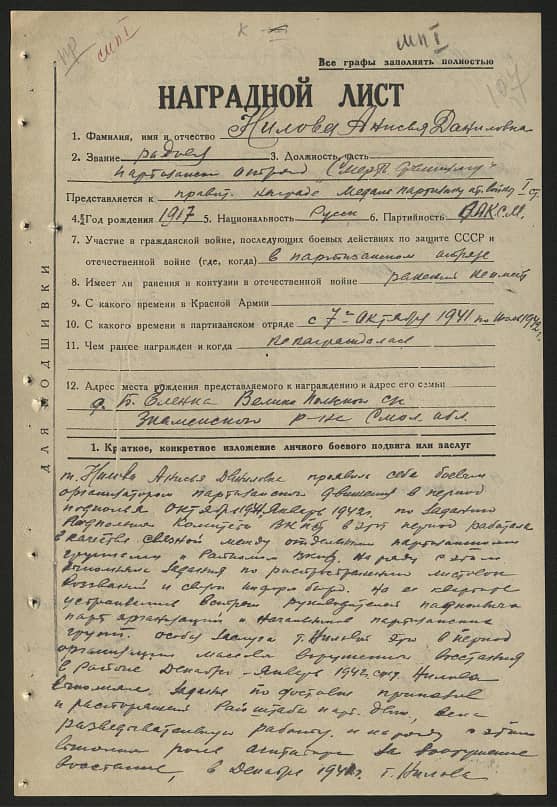 К
МП I
МП I
Все графы заполнять полностью
107
НАГРАДНОЙ ЛИСТ
1. Фамилия, имя и отчество Нилова Анисья Даниловна
2. Звание рядовая 3. Должность, часть
партизанский отряд "Смерть фашизму"
Представляется к правит. награде Медаль партизану от. войны I ст.
4. Год рождения 1917 5. Национальность Русск 6. Партийность ВЛКСМ.
7. Участие в гражданской войне, последующих боевых действиях по защите СССР и
отечественной войне (где, когда) в партизанском отряде
8. Имеет ли ранения и контузии в отечественной войне ранений не имеет
9. С какого времени в Красной Армии
10. С какого времени в партизанском отряде с 7го Октября 1941 по 1942 г.
11. Чем ранее награжден и когда не награждалась
12. Адрес места рождения представляемого к награждению и адрес его семьи:
д. Б. Еленка Велико
Знаменского р-на Смол. обл.
ДЛЯ ПОДШИВКИ
1. Краткое, конкретное изложение личного боевого подвига или заслуг
т. Нилова Анисья Даниловна проявила себя боевым
организатором партизанского движения в период
подполья Октябрь 1941, Январь 1942г. по заданию
Подпольн Комитета ВКПб в этот период работала
в качестве связной между отдельными партизанскими
группами и Райкомом ВКПб. На ряду с этим
выполняла задания по распространению листовок
воззваний и сводок информ бюро. На ее квартире
устраивались встречи руководителей подпольных
парт организаций и начальников партизанских
групп. особая заслуга т. Ниловой это в период
организации массового вооруженного восстания
в районе Декабрь - Январь 1942 года. Нилова
выполняла задание по доставке приказов
и распоряжений Райштаба парт. движ, вела
разведывательную работу и на ряду с этим
выполняла роль агитатора за вооруженное
восстание, в Декабре 1941г. т. Нилова